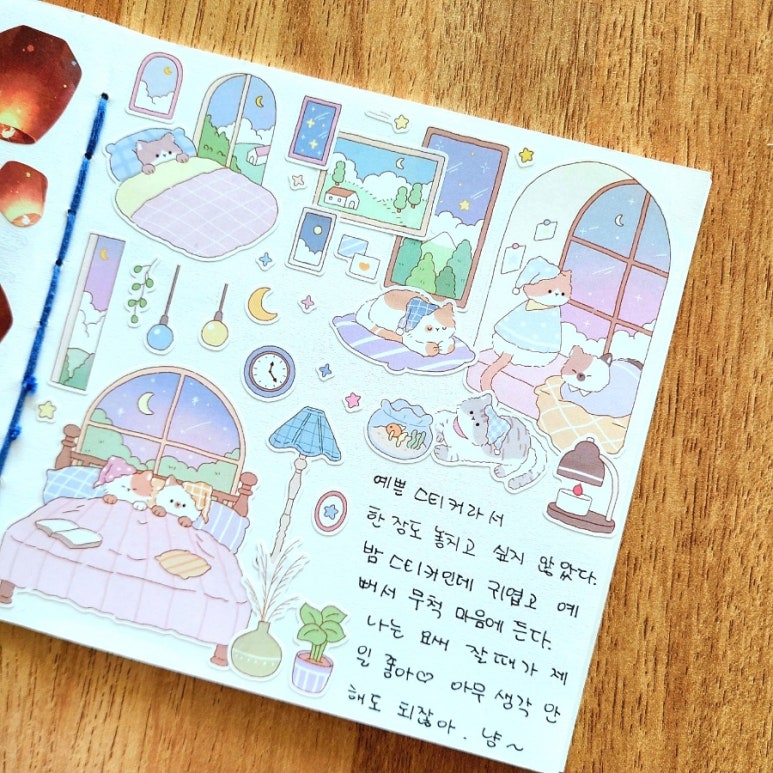 예쁜 스티커라서
한 장도 놓치고 싶지 않았다.
밤 스티커인데 귀엽고 예
뻐서 무척 마음에 든다.
나는 요새 잘 때가 제
일 좋아♡ 아무 생각 안
해도 되잖아. 냥~